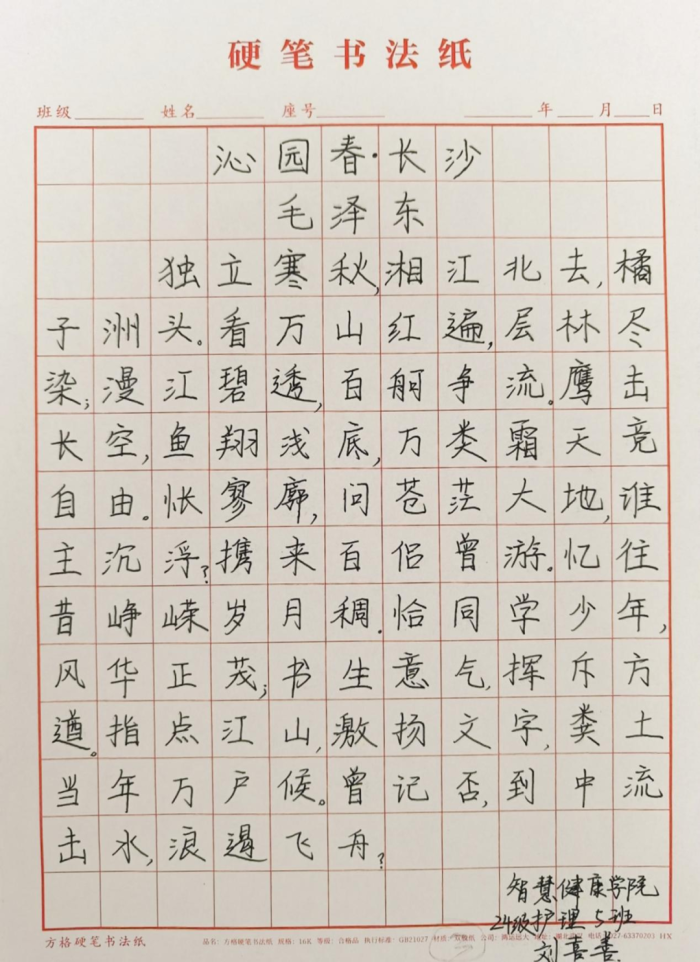 硬笔书法纸
班级 姓名 座号 年 月 日
沁园春·长沙
毛泽东
独立寒秋,湘江北去,橘
子洲头。看万山红遍,层林尽
染;漫江碧透,百舸争流。鹰击
长空,鱼翔浅底,万类霜天竞
自由。怅寥廓,问苍茫大地,谁
主沉浮?携来百侣曾游。忆往
昔峥嵘岁月稠.恰同学少年,
风华正茂;书生意气,挥斥方
遒。指点江山,激扬文字,粪土
当年万户侯。曾记否,到中流
击水,浪遏飞舟?
智慧健康学院
24级护理5班
刘喜善
方格硬笔书法纸 品名:方格硬笔书法纸 规格:16K 等级:合格品 执行标准:GB21027 HX